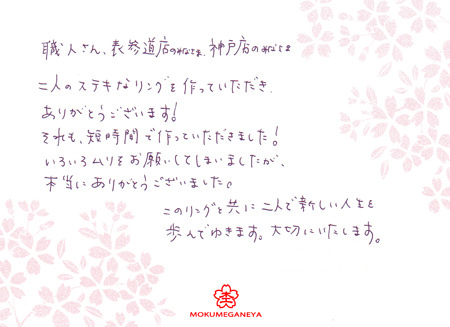 職人さん、表参道店のみなさま、神戸店のみなさま
二人のステキなリングを作っていただき
ありがとうございます!
それも、短時間で作っていただきました!
いろいろムリをお願いしてしまいましたが、
本当にありがとうございました。
このリングと共に二人で新しい人生を
歩んでゆきます。大切にいたします。
MOKUMEGANEYA